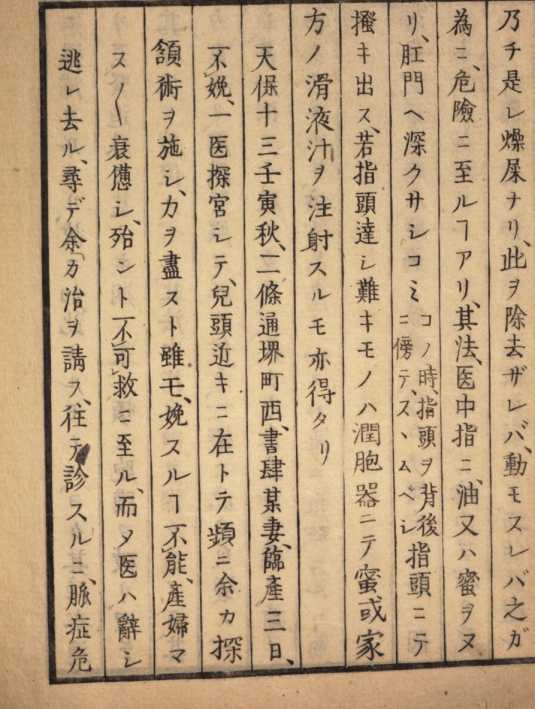 乃チ是レ燥屎ナリ、此ヲ除去ザレバ、動モスレバ之ガ
為ニ、危險ニ至ルヿアリ、其法、医中指ニ、油又ハ蜜ヲヌ
リ、肛門ヘ深クサシコミ
コノ時、指頭ヲ背後
ニ傍テ、スヽムベシ
指頭ニテ
搔キ出ス、若指頭達シ難キモノハ潤胞器ニテ蜜或家
方ノ滑液汁ヲ注射スルモ亦得タリ
天保十三壬寅秋、二條通堺町西、書肆某妻、臨產三日、
不娩、一医探宮シテ、兒頭近キニ在トテ頻ニ余カ探
頷術ヲ施シ、力ヲ盡スト雖モ、娩スルヿ不能、產婦マ
スノ〵衰憊シ、殆ント不可救ニ至ル、而〆医ハ辭シ
逃レ去ル、尋デ余カ治ヲ請フ、往テ診スルニ、脈症危